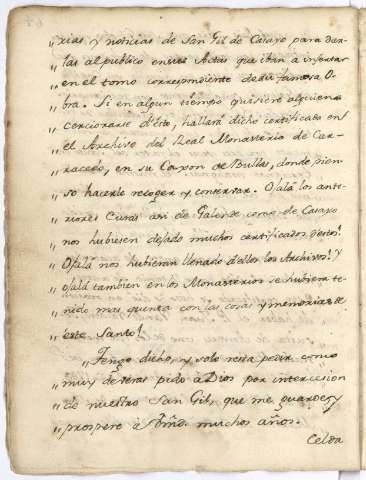 „rias y noticias de San Gil de Casayo para dar
„las al publico en sus Actas que iban a insertar
„en el tomo correspondiente de su famosa O-
„bra. Si en algun tiempo quisiere alguien a
„cerciorarse d'esto, hallará dicho certificado en
„el Archivo del Real Monasterio de Car-
„racedo, en su Caxon de Bullas, donde pien-
„so hacerle recoger y conservar. Ojalá los ante-
„riores Curas asi de como de Casayo
„nos hubiesen dejado muchos certificados d'estos!
„Ojalá nos hubieran llenado d'ellos los Archivos! Y
„ojalá tambien en los Monasterios se hubiera te-
„nido mas quenta con las cosas y memorias de
„este Santo!
„Tengo dicho, y solo resta pedir como
„muy de veras pido a Dios por intercesion
„de nuestro San Gil, que me guarde y
„prospere a Vmd. muchos años.
Celda